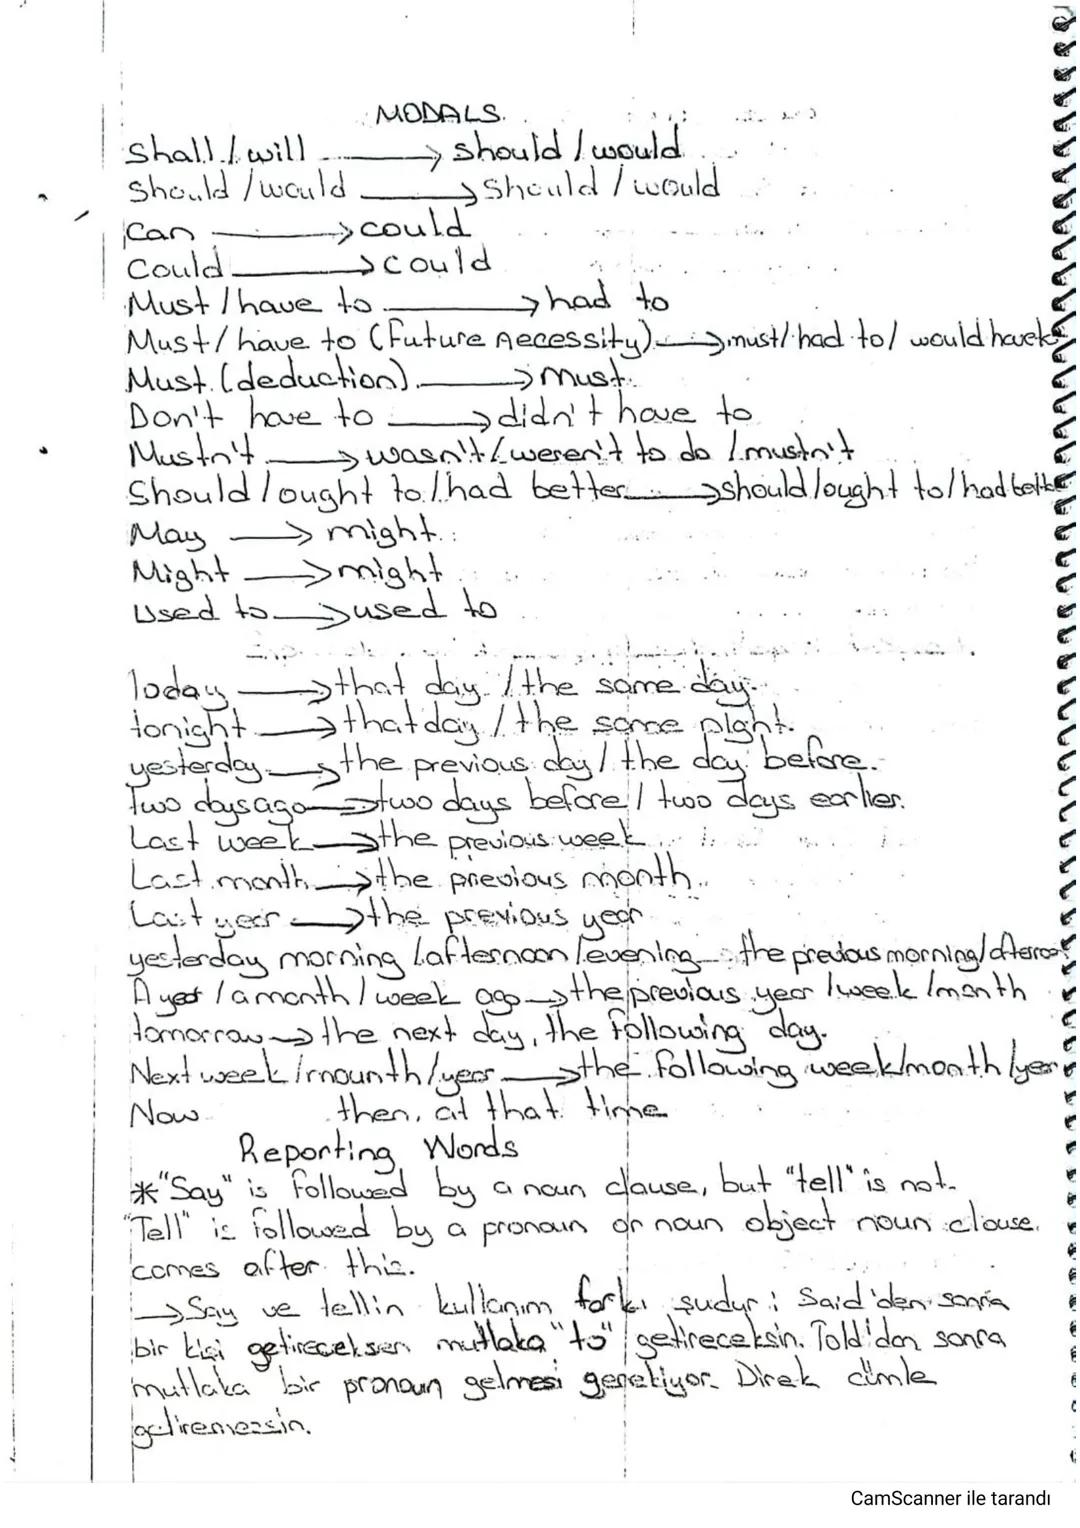 MODALS.
Shall / will → should / would
Should / would → should / would
Can → could
Could → could
Must / have to → had to
Must / have to (future necessity) → must / had to / would have to
Must (deduction) → must.
Don't have to → didn't have to
Mustn't → wasn't / weren't to do / mustn't
Should / ought to / had better → should / ought to / had better
May → might
Might → might
Used to → used to
Today → that day / the same day.
tonight → that day / the same night.
yesterday → the previous day / the day before.
Two days ago → two days before / two days earlier.
Last week → the previous week
Last month → the previous month.
Last year → the previous year
yesterday morning / afternoon / evening the previous morning / afternoon
A year / a month / week ago → the previous year / week / month
tomorrow → the next day, the following day.
Next week / mounth / year → the following week/month/year
Now then, at that time
Reporting Words
* "Say" is followed by a noun clause, but "tell" is not.
"Tell" is followed by a pronoun or noun object noun clouse.
comes after this.
→ Say ve tellin kullanım farkı şudur: Said'den sonra
bir kişi getireceksen mutlaka "to" getireceksin. Told'dan sonra
mutlaka bir pronoun gelmesi gerekiyor. Direk cümle
getiremezsin.
CamScanner ile tarandı